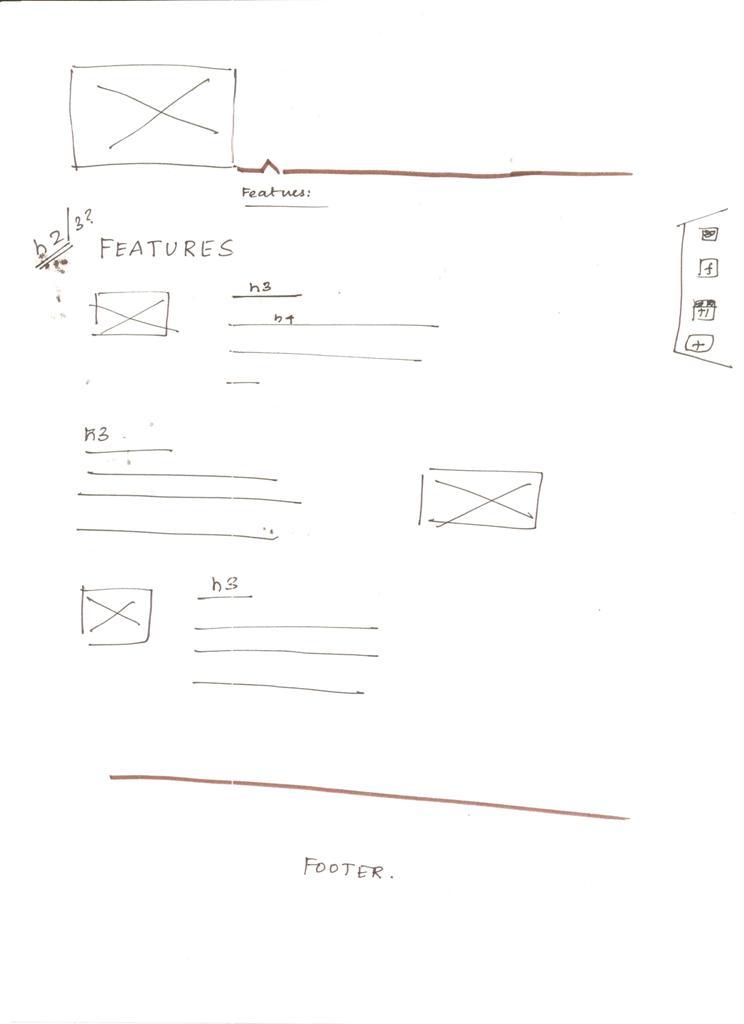 Features:
h2/3?
FEATURES
h3
h4
f
h3
+
h3
FOOTER.